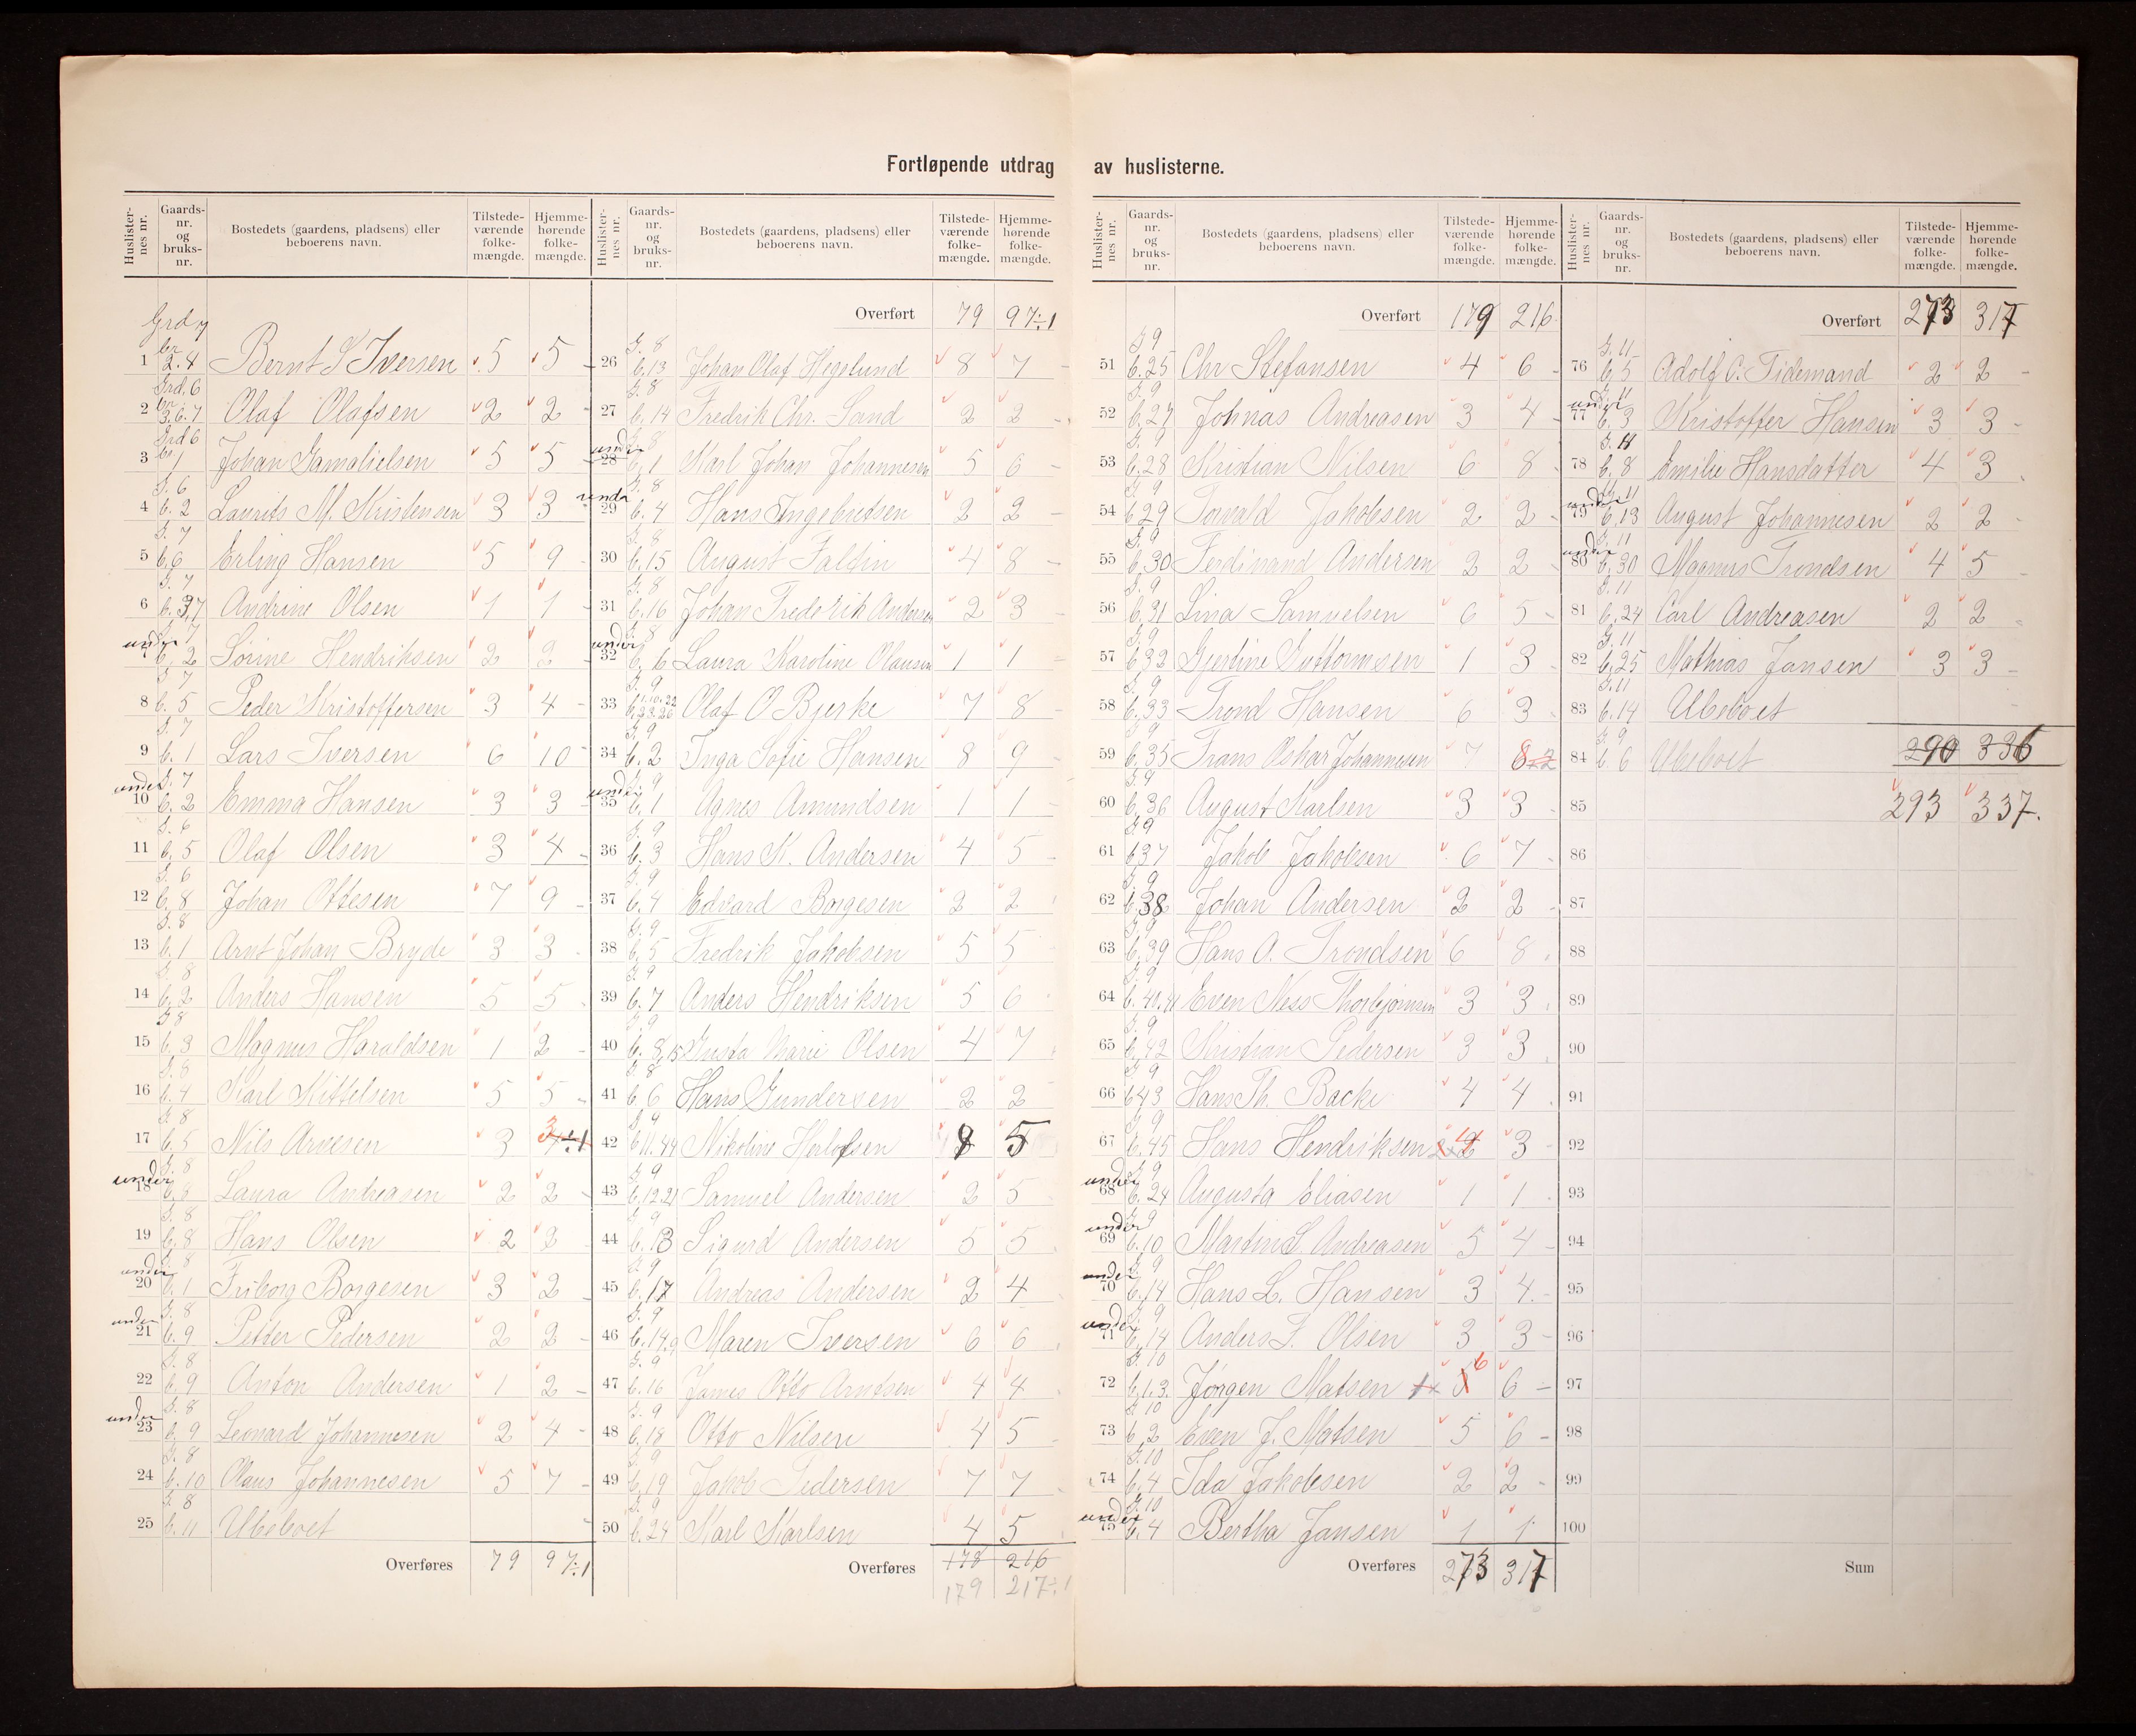 Fortløpende utdrag av huslisterne.
Huslister-nes nr. | Gaards-nr. og bruks-nr. | Bostedets (gaardens, pladsens) eller beboerens navn. | Tilstede-værende folke-mængde. | Hjemme-hørende folke-mængde.
1 Grd 7 br 2.4 Bernt S Iversen 5 5
2 Grd. 6 br. 3.6.7 Olaf Olafsen 2 2
3 Grd 6 br. 1 Johan Gamalielsen 5 5
4 G. 6 b. 2 Laurits M. Kristensen 3 3
5 G. 7 b. 6 Erling Hansen 5 9
6 G. 7 b. 3,7 Andrine Olsen 1 1
under 7 G. 7 b. 2 Sørine Hendriksen 2 2
8 G. 7 b. 5 Peder Kristoffersen 3 4
9 G. 7 b. 1 Lars Iversen 6 10
under 10 G. 7 b. 2 Emma Hansen 3 3
11 G. 6 b. 5 Olaf Olsen 3 4
12 G. 6 b. 8 Johan Ottesen 7 9
13 G. 8 b. 1 Arnt Johan Bryde 3 3
14 G. 8 b. 2 Anders Hansen 5 5
15 G. 8 b. 3 Magnus Haraldsen 1 2
16 G. 8 b. 4 Karl Kittelsen 5 5
17 G. 8 b. 5 Nils Arnesen 3 3 4÷1
under 18 G. 8 b. 8 Laura Andreasen 2 2
19 G. 8 b. 8 Hans Olsen 2 3
under 20 G. 8 b. 1 Friborg Borgesen 3 2
under 21 G. 8 b. 9 Petter Pedersen 2 2
22 G. 8 b. 9 Anton Andersen 1 2
under 23 G. 8 b. 9 Leonard Johannesen 2 4
24 G. 8 b. 10 Olaus Johannesen 5 7
25 G. 8 b. 11 Ubeboet
Overføres 79 97÷1
Huslister-nes nr. | Gaards-nr. og bruks-nr. | Bostedets (gaardens, pladsens) eller beboerens navn. | Tilstede-værende folke-mængde. | Hjemme-hørende folke-mængde.
Overført 79 97÷1
26 G. 8 b. 13 Johan Olaf Hegelund 8 7
27 G. 8 b. 14 Fredrik Chr. Sand 2 2
under 28 G. 8 b. 1 Karl Johan Johannesen 5 6
under 29 G. 8 b. 4 Hans Ingebretsen 2 2
30 G. 8 b. 15 August Faltin 4 8
31 G. 8 b. 16 Johan Frederik Andersen 2 3
under 32 G. 8 b. 6 Laura Karoline Olausen 1 1
33 G. 9 b. 1.10.22 23.26 Olaf O Bjerke 7 8
34 G. 9 b. 2 Inga Sofie Hansen 8 9
under 35 G. 9 b. 1 Agnes Amundsen 1 1
36 G. 9 b. 3 Hans K. Andersen 4 5
37 G. 9 b. 4 Edvard Borgesen 2 2
38 G. 9 b. 5 Fredrik Jakobsen 5 5
39 G. 9 b. 7 Anders Hendriksen 5 6
40 G. 9 b. 8,15 Gusta Marie Olsen 4 7
41 G. 8 b 6 Hans Gundersen 2 2
42 G. 9 b 11.44 Nikoline Herlofsen 8 5
43 G. 9 b. 12.21 Samuel Andersen 2 5
44 G. 9 b. 13 Sigurd Andersen 5 5
45 G. 9 b. 17 Andreas Andersen 2 4
46 G. 9 b. 14,9 Maren Iversen 6 6
47 G. 9 b. 16 James Otto Arntsen 4 4
48 G. 9 b. 18 Otto Nilsen 4 5
49 G. 9 b. 19 Jakob Pedersen 7 7
50 G. 9 b. 24 Karl Karlsen 4 5
Overføres 178 216
179 217÷1
Huslister-nes nr. | Gaards-nr. og bruks-nr. | Bostedets (gaardens, pladsens) eller beboerens navn. | Tilstede-værende folke-mængde. | Hjemme-hørende folke-mængde.
Overført 179 216
51 G 9 b. 25 Chr Stefansen 4 6
52 G. 9 b. 27 Johnas Andreasen 3 4
53 G. 9 b. 28 Kristian Nilsen 6 8
54 G. 9 b 29 Torvald Jakobsen 2 2
55 G. 9 b. 30 Ferdinand Andersen 2 2
56 G. 9 b. 31 Lina Samuelsen 6 5
57 G. 9 b 32 Gjertine Guttormsen 1 3
58 G. 9 b. 33 Trond Hansen 6 3
59 G. 9 b. 35 Frans Oskar Johannesen 7 8
60 G. 9 b. 36 August Karlsen 3 3
61 G 9 b 37 Jakob Jakobsen 6 7
62 G. 9 b. 38 Johan Andersen 2 2
63 G 9 b. 39 Hans A. Trondsen 6 8
64 G. 9 b. 40.41 Even Ness Thorbjørnsen 3 3
65 G. 9 b. 42 Kristian Pedersen 3 3
66 G 9 b 43 Hans Th. Backe 4 4
67 G 9 b. 45 Hans Hendriksen 4 3
under 68 G. 9 b. 24 Augusta Eliasen 1 1
under 69 G. 9 b. 10 Martin L Andreasen 5 4
under 70 G. 9 b. 14 Hans L. Hansen 3 4
under 71 G. 9 b. 14 Anders F. Olsen 3 3
72 G. 10 b. 1.3. Jørgen Matsen 6 6
73 G 10 b. 2 Even J. Matsen 5 6
74 G. 10 b. 4 Ida Jakobsen 2 2
under 75 G. 10 b. 4 Bertha Jansen 1 1
Overføres 273 317
Huslister-nes nr. | Gaards-nr. og bruks-nr. | Bostedets (gaardens, pladsens) eller beboerens navn. | Tilstede-værende folke-mængde. | Hjemme-hørende folke-mængde.
Overført 273 317
76 G. 11 b. 5 Adolf C. Tidemand 2 2
under 77 G. 11 b. 3 Kristoffer Hansen 3 3
78 G. 11 b. 8 Emilie Hansdatter 4 3
under 79 G. 11 b. 13 August Johannesen 2 2
under 80 G. 11 b. 30 Magnus Trondsen 4 5
81 G. 11 b. 24 Carl Andreasen 2 2
82 G. 11 b. 25 Mathias Jansen 3 3
83 G. 11 b. 14 Ubeboet
84 G 9 b 6 Ubeboet 290 336
85 293 337.
86
87
88
89
90
91
92
93
94
95
96
97
98
99
100
Sum